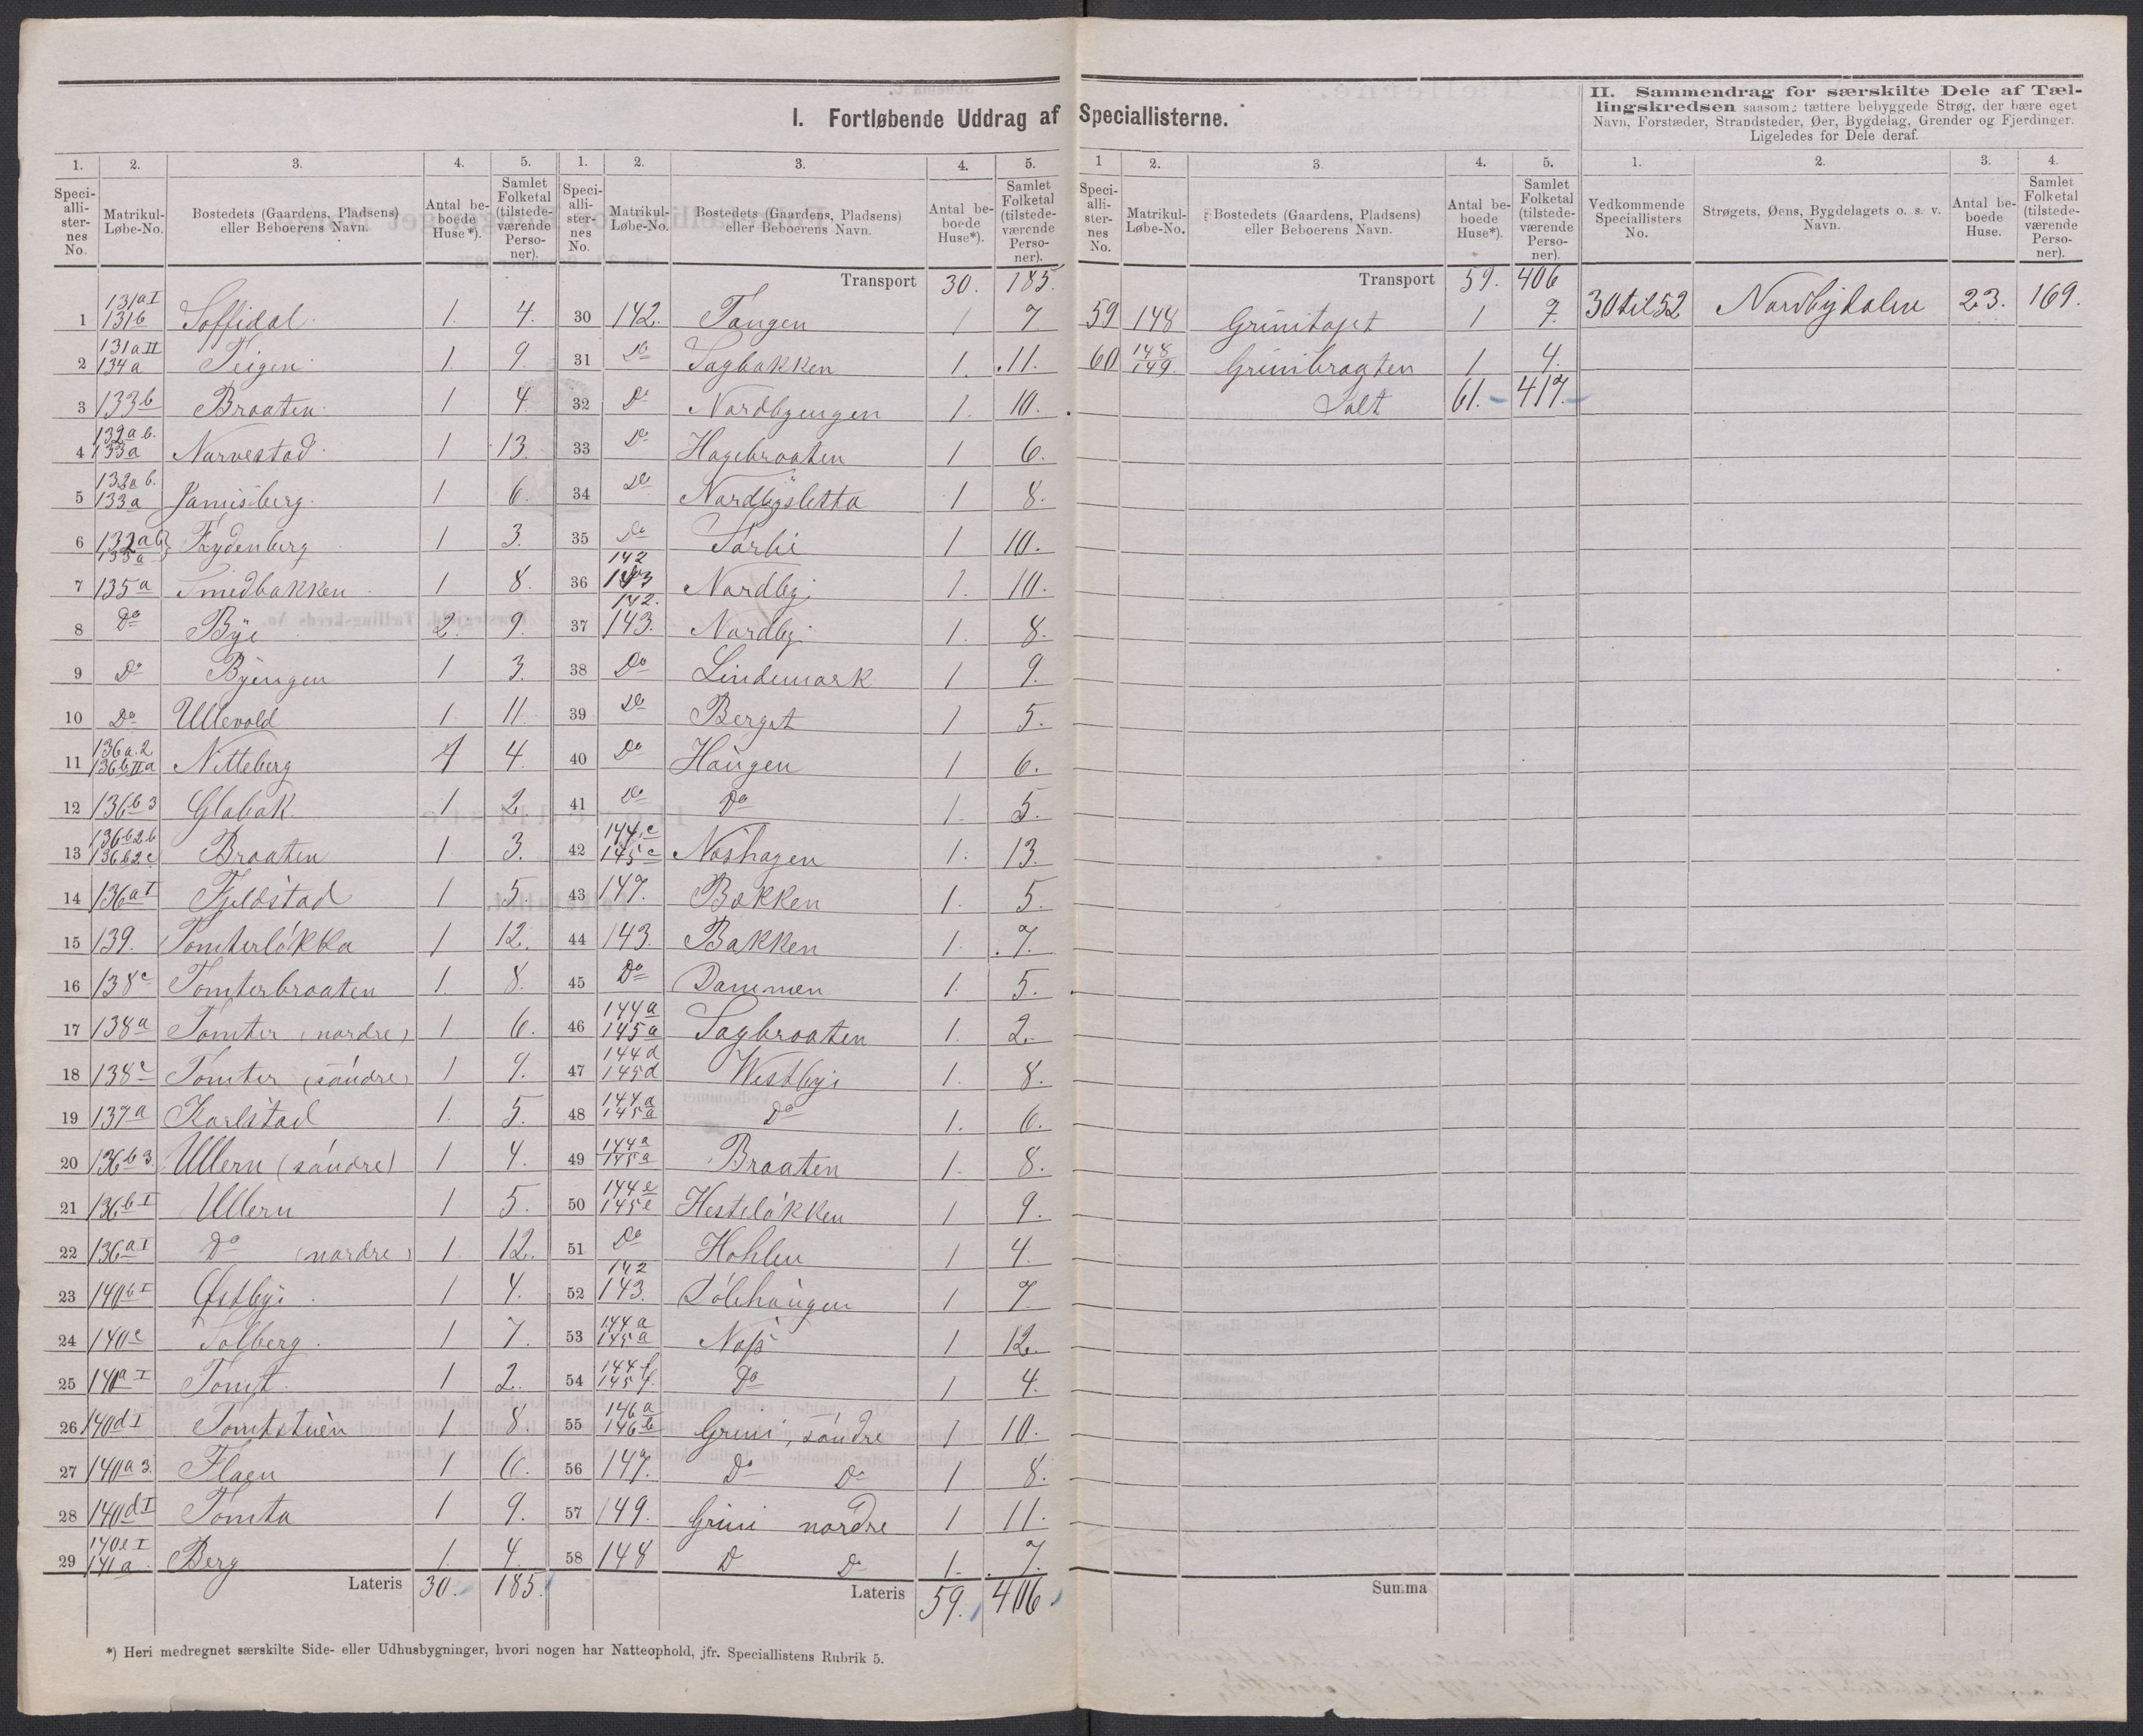 I. Fortløbende Uddrag af Speciallisterne.
1. 2. 3. 4. 5.
Speciallisternes No. Matrikul-Løbe-No. Bostedets (Gaardens, Pladsens) eller Beboerens Navn. Antal beboede Huse*). Samlet Folketal (tilstedeværende Personer).
1 131a I 131b Soffidal 1. 4.
2 131a II 134a Teigen 1. 9.
3 133b Braaten 1 4
4 132a b. 133a Narvestad 1 13
5 132a b. 133a Jamisberg 1 6.
6 132ab 133a Frydenberg 1 3.
7 135a Smedbakken 1 8.
8 Do Bye 2. 9.
9 Do Byengen 1 3.
10 Do Ullevold 1. 11
11 136a.2 136b IIa Nitteberg 1 4.
12 136b3 Glabak 1 2.
13 136b2b 136b2c Braaten 1 3.
14 136a I Fjeldstad 1 5.
15 139. Tomterløkka 1 12.
16 138c Tomterbraaten 1. 8.
17 138a Tomter (nordre) 1 6.
18 138c Tomter (søndre) 1 9.
19 137a Karlstad 1. 5.
20 136b3 Ullern (søndre) 1 4.
21 136b I Ullern 1 5.
22 136a I Do (nordre) 1. 12.
23 140b I Østbye 1 4.
24 140c Solberg 1 7.
25 140a I Tomt 1 2.
26 140d I Tomtstuen 1 8.
27 140a 3 Flaen 1 6.
28 140d I Tomta 1 9.
29 140e I 141a Berg 1. 4.
Lateris 30. 185.
1. 2. 3. 4. 5.
Speciallisternes No. Matrikul-Løbe-No. Bostedets (Gaardens, Pladsens) eller Beboerens Navn. Antal beboede Huse*). Samlet Folketal (tilstedeværende Personer).
Transport 30. 185.
30 142. Tangen 1 7.
31 Do Sagbakken 1. 11.
32 Do Nordbyengen 1. 10.
33 Do Hagebraaten 1 6.
34 Do Nordbysletta 1 8.
35 Do Sorbi 1 10.
36 142 143 Nordby 1. 10.
37 142. 143. Nordby 1. 8.
38 Do Lindemark 1 9.
39 Do Berget 1 5.
40 Do Haugen 1 6.
41 Do Do 1. 5.
42 144c 145c Noshagen 1. 13.
43 147. Bakken 1. 5.
44 143. Bakken 1. 7.
45 Do Dammen 1. 5.
46 144a 145a Sagbraaten 1. 2.
47 144d 145d Westbye 1. 8.
48 144a 145a Do 1. 6.
49 144a 145a Braaten 1. 8.
50 144e 145e Hesteløkken 1 9.
51 Do Hohlen 1 4.
52 142 143. Sølehaugen 1 7.
53 144a 145a Noss 1 12.
54 144f 145f. Do 1 4.
55 146a 146b Grini, søndre 1 10.
56 147. Do Do 1 8.
57 149. Grini nordre 1 11.
58 148 D Do 1. 7.
Lateris 59. 406.
1 2. 3. 4. 5.
Speciallisternes No. Matrikul-Løbe-No. Bostedets (Gaardens, Pladsens) eller Beboerens Navn. Antal beboede Huse*). Samlet Folketal (tilstedeværende Personer).
Transport 59. 406
59 148 Grinitajet 1 7.
60 148 149. Grinibraaten 1 4.
Salt 61. 417.
Summa
II. Sammendrag for særskilte Dele af Tæl-
lingskredsen saasom: tættere bebyggede Strøg, der bære eget
Navn, Forstæder, Strandsteder, Øer, Bygdelag, Grender og Fjerdinger.
Ligeledes for Dele deraf.
1. 2. 3. 4.
Vedkommende Speciallisters No. Strøgets, Øens, Bygdelagets o. s. v. Navn. Antal beboede Huse. Samlet Folketal (tilstedeværende Personer).
30 til 52 Nordbydalen 23. 169.
*) Heri medregnet særskilte Side- eller Udhusbygninger, hvori nogen har Natteophold, jfr. Speciallistens Rubrik 5.